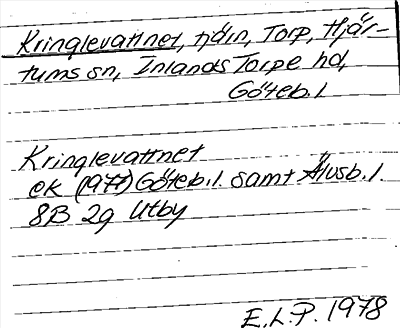 Kringlevattnet, tjärn, Torp, Hjär-
tums sn, Inlands Torpe hd,
Göteb. l
Kringlevattnet
ek (1977) Göteb. l. samt Älvsb. l.
8B 2g Utby
E.L.P. 1978